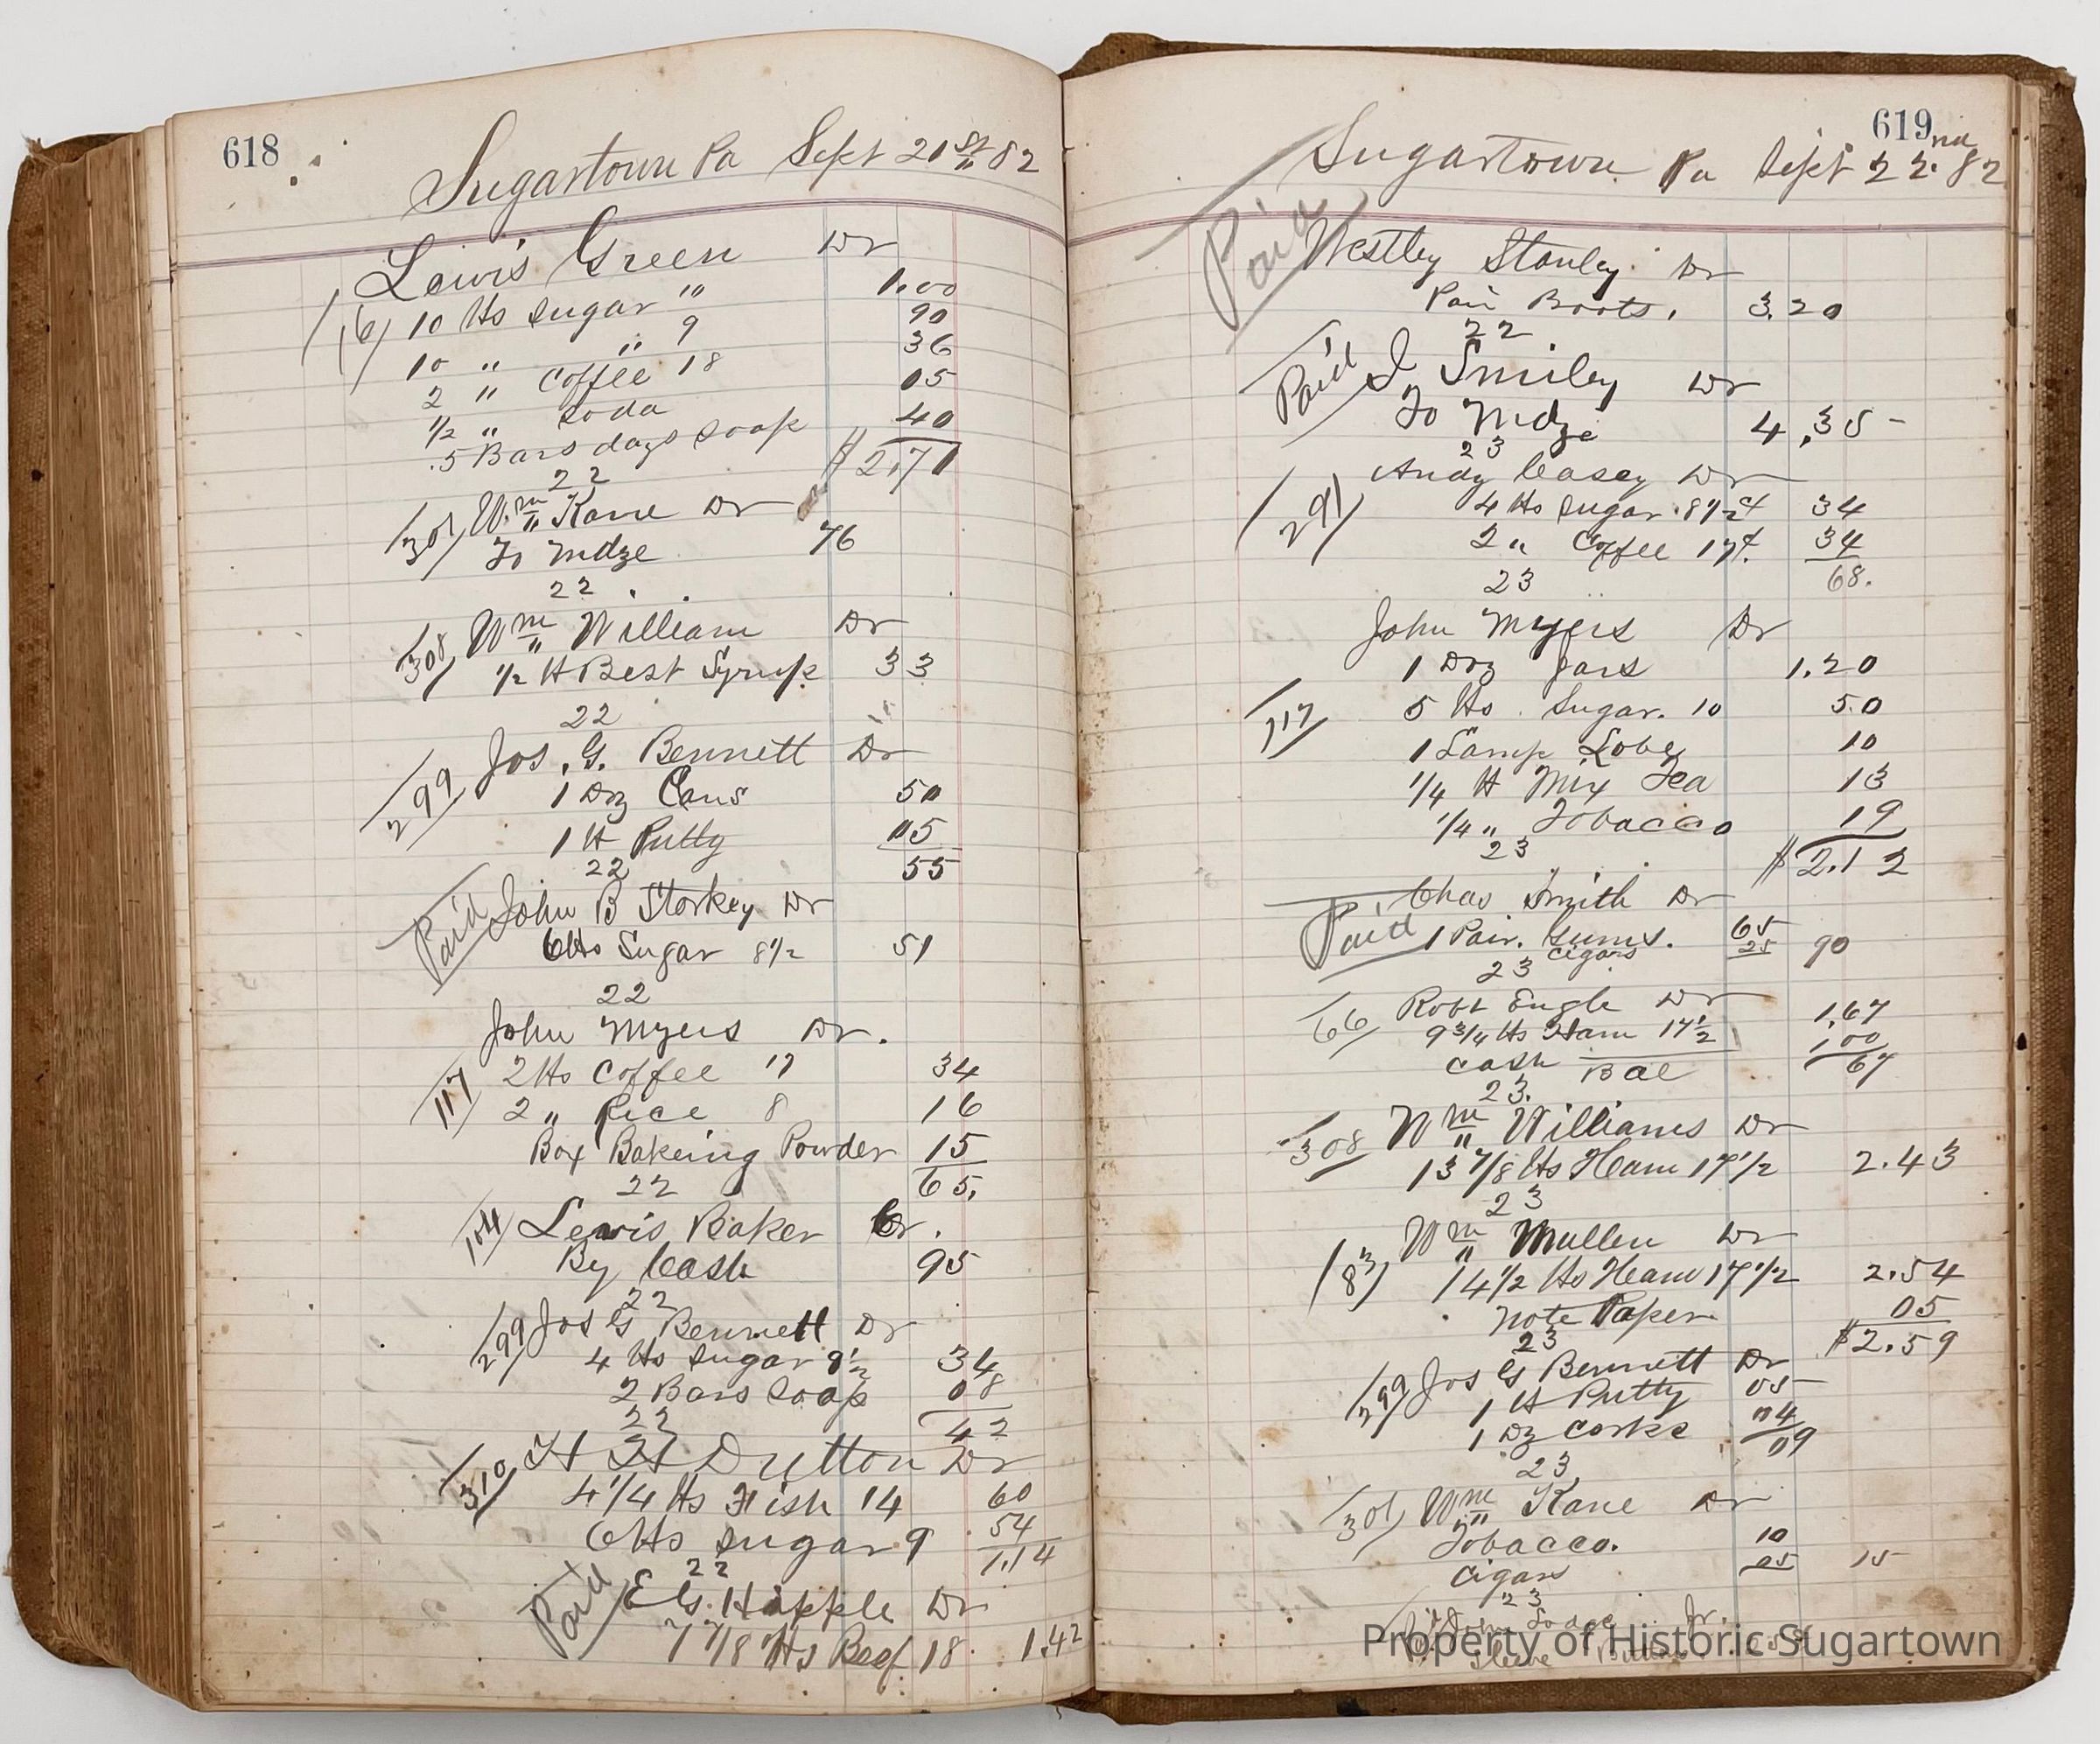 618
Sugartown Pa Sept 21st 82
Lewis Green Dr
16 10 lbs Sugar " 1.00
10 " " 9 90
2 " Coffee 18 36
1/2 " Soda 05
5 Bars days Soap 40
$2.71
22
301 Wm Kane Dr
To Mdze 76
22
308 Wm William Dr
1/2 lb Best Syrup 33
22
299 Jos. G. Bennett Dr
1 Doz Cans 50
1 lb Putty 05
22 55
Paid John B Storkey Dr
6 lbs Sugar 8 1/2 51
22
John Myers Dr.
117 2 lbs Coffee 17 34
2 " Rice 8 16
Box Bakeing Powder 15
22 65.
104 Lewis Baker Cr.
By Cash 95
22
299 Jos G Bennett Dr
4 lbs Sugar 8 1/2 34
2 Bars Soap 08
22 42
310 H H Dutton Dr
4 1/4 lbs Fish 14 60
6 lbs Sugar 9 54
22 1.14
Paid E G. Happle Dr
7 7/8 lbs Beef 18 1.42
619
Sugartown Pa Sept 22nd 82
Paid Westley Stanley Dr
Pair Boots. 3.20
22
Paid J Smiley Dr
To Mdze 4.35
23
Andy Casey Dr
291 4 lbs Sugar 8 1/2 ¢ 34
2 " Coffee 17¢ 34
23 68.
John Myers Dr
1 Doz Jars 1.20
117 5 lbs Sugar. 10 50
1 Lamp Lobe 10
1/4 lb Mix Tea 13
1/4 " Tobacco 19
23 $2.12
Chas Smith Dr
Paid 1 Pair. Gums. 65
Cigars 25 90
23
66 Robt Engle Dr
9 3/4 lbs Ham 17 1/2 1.67
Cash 1.00
Bal 67
23.
308 Wm Williams Dr
13 7/8 lbs Ham 17 1/2 2.43
23
183 Wm Mullen Dr
14 1/2 lbs Ham 17 1/2 2.54
Note Paper 05
23 $2.59
299 Jos G Bennett Dr
1 lb Putty 05
1 Dz Corks 04
09
23
301 Wm Kane Dr
Tobacco. 10
Cigars 05 15
23
Property of Historic Sugartown